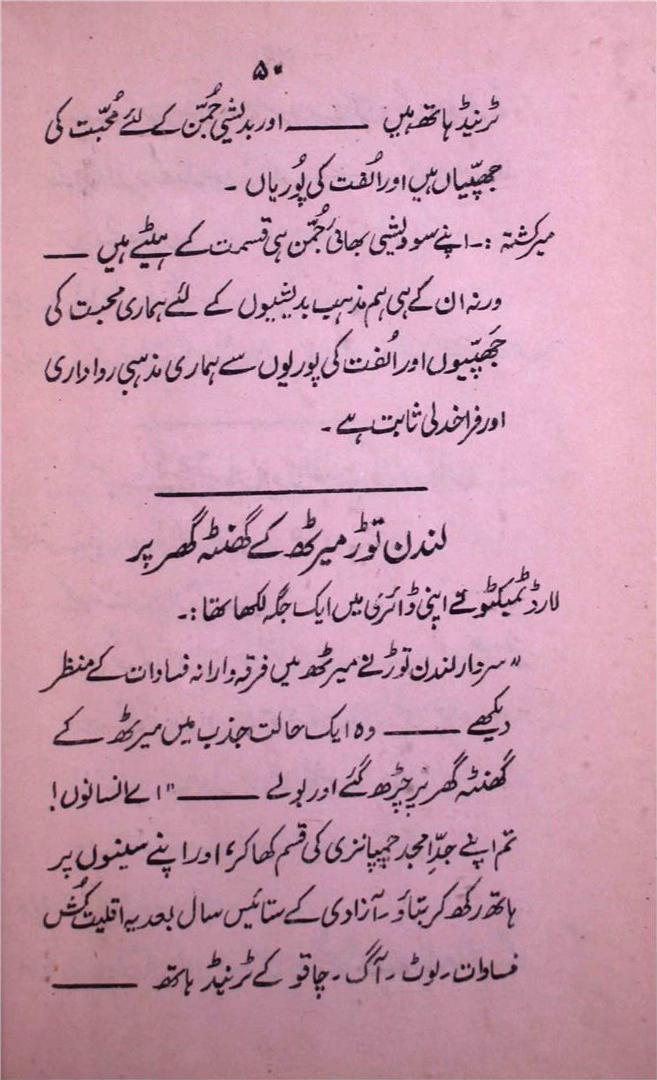 ۵۰
ٹرنیڈ ہاتھ ہیں ـــــــ اور بدیشی جُمّن کے لئے مُحبّت کی
جھپّیاں ہیں اور اُلفت کی پُوریاں ۔
میر کشتہ :۔ اپنے سودیشی بھائی جُمّن ہی قسمت کے ہیٹے ہیں ـــــ
ورنہ ان کے ہی ہم مذہب بدیشیوں کے لئے ہماری محبت کی
جَھپّیوں اور اُلفت کی پوریوں سے ہماری مذہبی رواداری
اور فراخدلی ثابت ہے ۔
لندن توڑ میرٹھ کے گھنٹہ گھر پر
لارڈ ٹمبکٹو نے اپنی ڈائری میں ایک جگہ لکھا تھا :۔
"سردار لندن توڑ نے میرٹھ میں فرقہ وارانہ فسادات کے منظر
دیکھے ـــــــ وہ ایک حالت جذب میں میرٹھ کے
گھنٹہ گھر پر چڑھ گئے اور بولے ـــــــ "اے انسانوں!
تم اپنے جدِّ امجد چمپانزی کی قسم کھا کر، اور اپنے سینوں پر
ہاتھ رکھ کر بتاؤ ۔ آزادی کے ستائیس سال بعد یہ اقلیت کُش
فسادات ۔ لوٹ ۔ آگ ۔ چاقو کے ٹرنیڈ ہاتھ ـــــــ